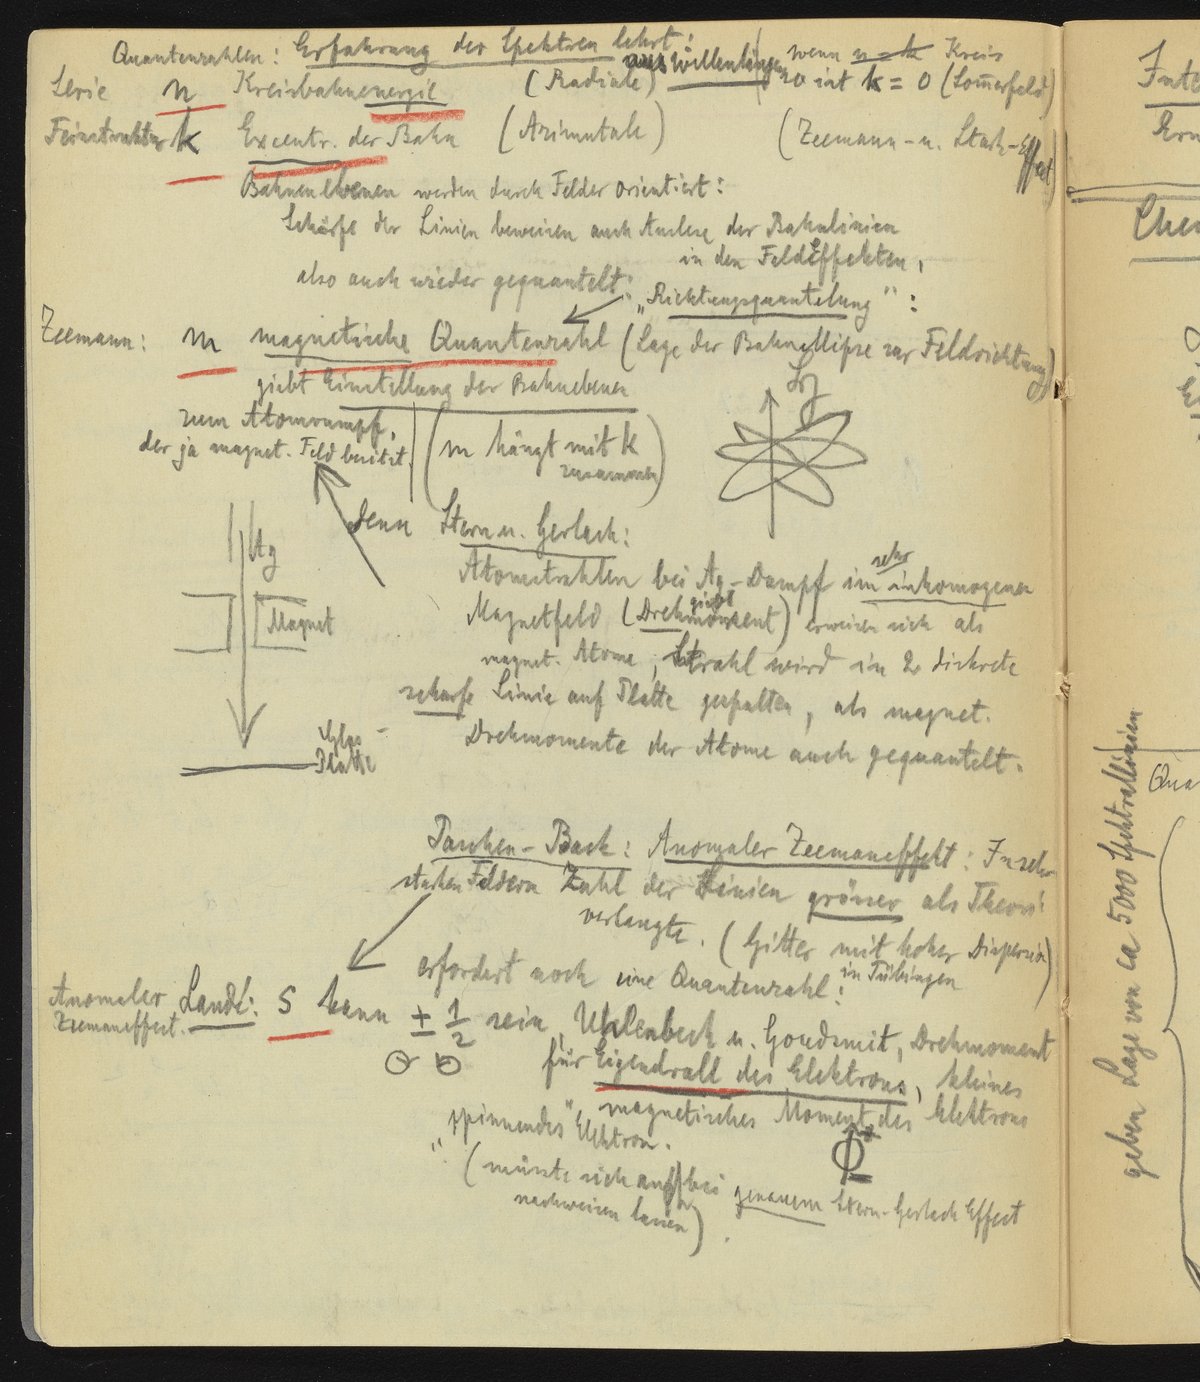 Quantenzahlen: Erfahrung der Spektren lehrt:
Serie n Kreisbahnenergie (Radiale) aus Wellenlängen wenn n = k Kreis
so ist k = 0 (Som̄erfeld)
Feinstruktur k Excentr. der Bahn (Azimutale) (Zeemann- u. Stark-Effect)
Bahnenebenen werden durch Felder orientiert:
Schärfe der Linien beweisen auch Auslese der Bahnlinien
in den Feldeffekten,
also auch wieder gequantelt: „Richtungsquantelung":
Zeemann: m magnetische Quantenzahl (Lage der Bahnellipse zur Feldrichtung)
giebt Einstellung der Bahnebenen
zum Atomrumpf,
der ja magnet. Feld besitzt. (m hängt mit k
zusammen)
denn Stern u. Gerlach:
Ag
Atomstrahlen bei Ag-Dampf im sehr inhomogenen
Magnetfeld (giebt Drehmoment) erweisen sich als
Magnet
magnet. Atome, Strahl wird in 2 diskrete
scharfe Linie auf Platte gespalten, als magnet.
Drehmomente der Atome auch gequantelt.
Glas-
Platte
Paschen-Back: Anomaler Zeemaneffekt: In sehr
starken Feldern Zahl der Linien grösser als Theorie
verlangte. (Gitter mit hoher Dispersion
in Tübingen)
erfordert noch eine Quantenzahl:
Anomaler
Zeemaneffect. Landé: s kann ± 1/2 sein, Uhlenbeck u. Goudsmit, Drehmoment
für Eigendrall des Elektrons, kleines
magnetisches Moment des Elektrons
„spinnendes" Elektron.
(müsste sich auch bei genauem Stern-Gerlach Effect
nachweisen lassen).
geben Lage von ca 5000 Spektrallinien
Inte
Chem
Qua